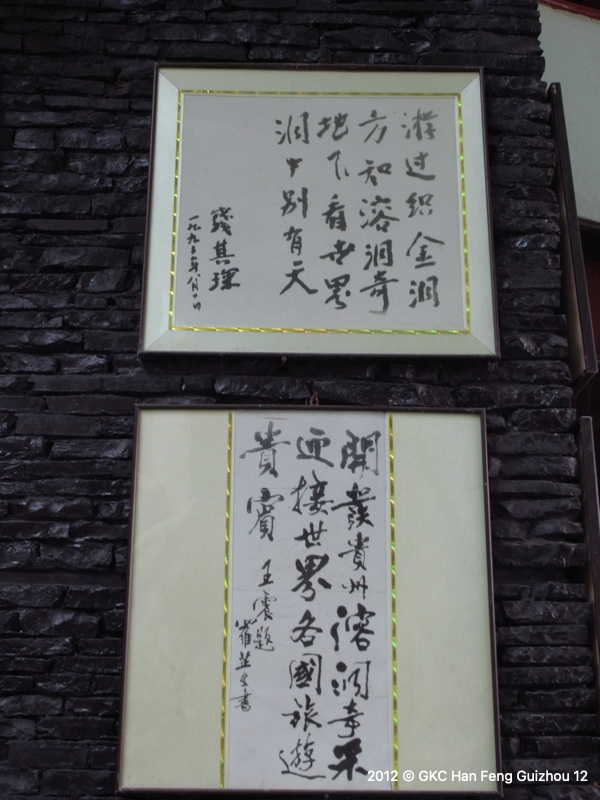 游过织金洞
方知溶洞奇
地下看世界
洞中别有天
钱其琛
開發貴州溶洞奇采
迎接世界各國旅遊
貴賓
王震題
2012 © GKC Han Feng Guizhou 12